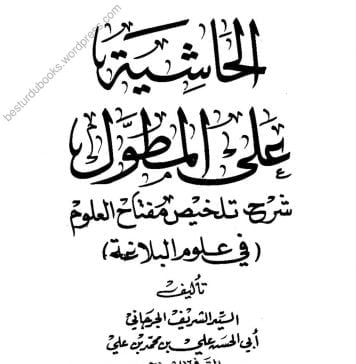 الحاشية
على المطوّل
شرح تلخيص مفتاح العلوم
(في علوم البلاغة)
تأليف
السيد الشريف الجرجاني
أبي الحسن علي بن محمد بن علي
besturdubooks.wordpress.com